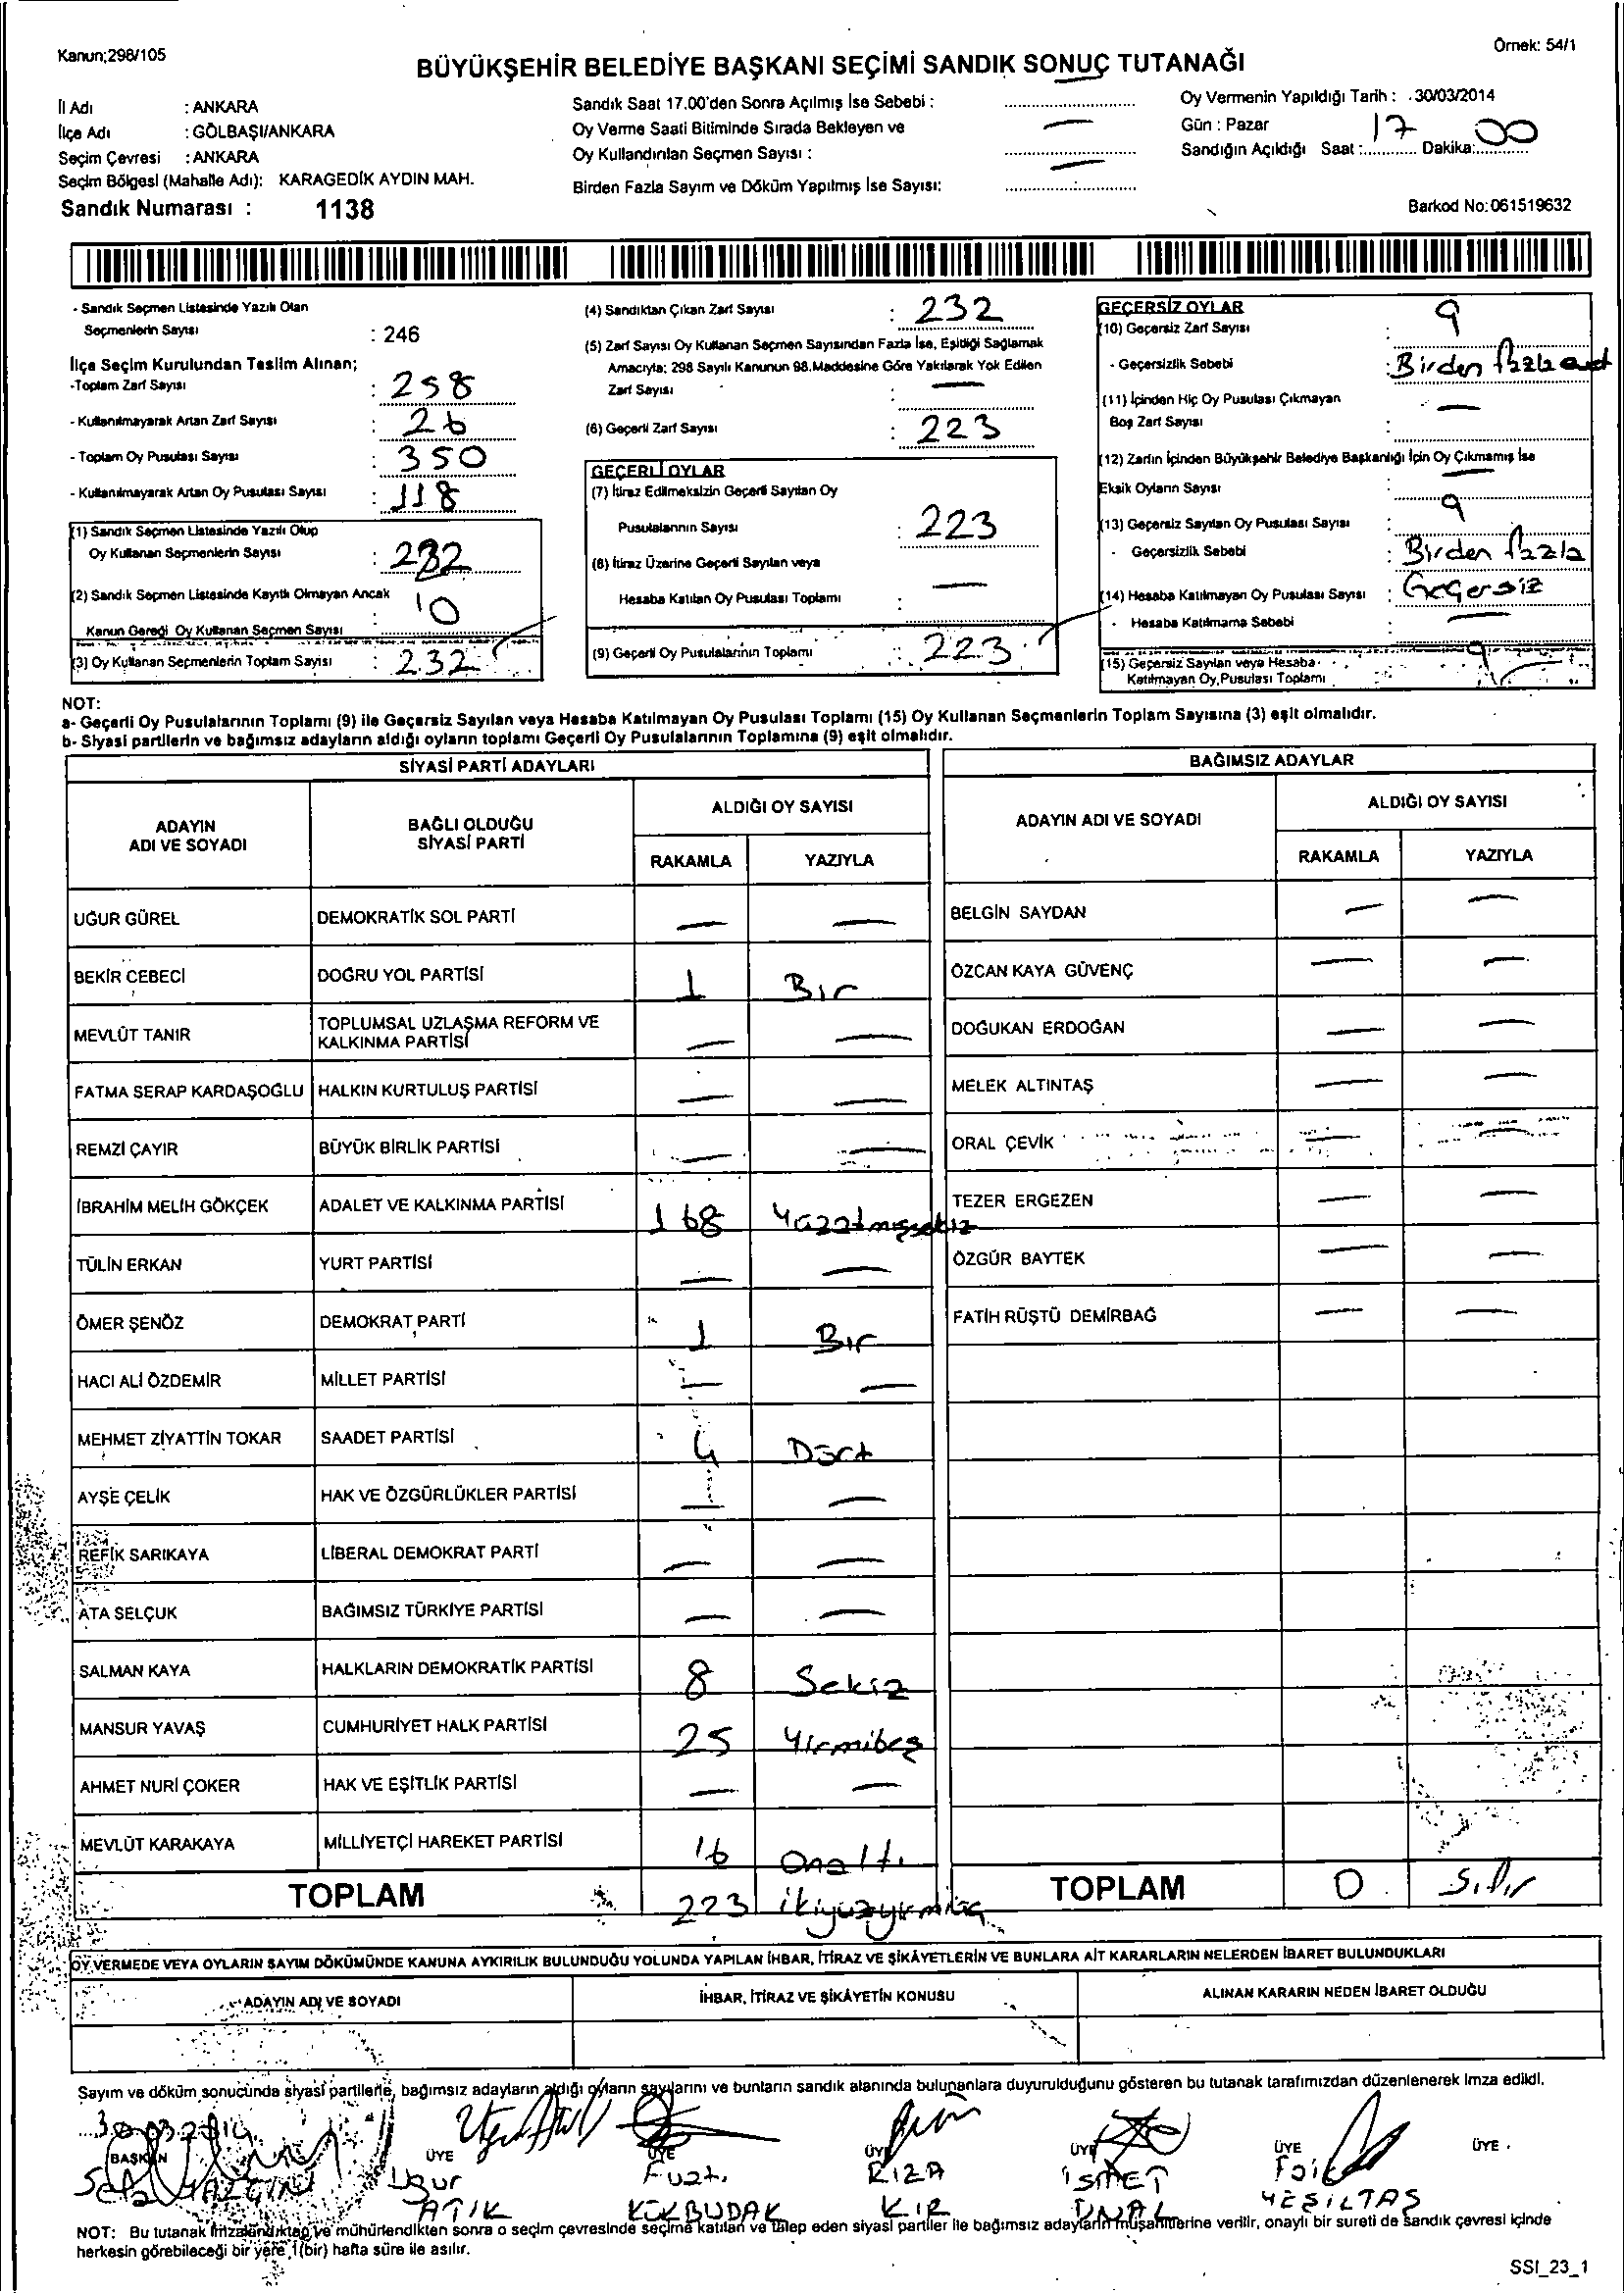 Kanun;298/105
Örnek: 54/1
BÜYÜKŞEHİR BELEDİYE BAŞKANI SEÇİMİ SANDIK SONUÇ TUTANAĞI
İl Adı : ANKARA
İlçe Adı : GÖLBAŞI/ANKARA
Seçim Çevresi : ANKARA
Seçim Bölgesi (Mahalle Adı): KARAGEDİK AYDIN MAH.
Sandık Numarası : 1138
Sandık Saat 17.00'den Sonra Açılmış İse Sebebi :
Oy Verme Saati Bitiminde Sırada Bekleyen ve
Oy Kullandırılan Seçmen Sayısı : —
Birden Fazla Sayım ve Döküm Yapılmış İse Sayısı: —
Oy Vermenin Yapıldığı Tarih : 30/03/2014
Gün : Pazar
Sandığın Açıldığı Saat : 17 Dakika: 00
Barkod No:061519632
- Sandık Seçmen Listesinde Yazılı Olan
Seçmenlerin Sayısı : 246
İlçe Seçim Kurulundan Teslim Alınan;
-Toplam Zarf Sayısı : 258
- Kullanılmayarak Artan Zarf Sayısı : 26
- Toplam Oy Pusulası Sayısı : 350
- Kullanılmayarak Artan Oy Pusulası Sayısı : 118
(1) Sandık Seçmen Listesinde Yazılı Olup
Oy Kullanan Seçmenlerin Sayısı : 232
(2) Sandık Seçmen Listesinde Kayıtlı Olmayan Ancak
Kanun Gereği Oy Kullanan Seçmen Sayısı : 10
(3) Oy Kullanan Seçmenlerin Toplam Sayısı : 232
(4) Sandıktan Çıkan Zarf Sayısı : 232
(5) Zarf Sayısı Oy Kullanan Seçmen Sayısından Fazla İse, Eşitliği Sağlamak
Amacıyla; 298 Sayılı Kanunun 98.Maddesine Göre Yakılarak Yok Edilen
Zarf Sayısı : —
(6) Geçerli Zarf Sayısı : 223
GEÇERLİ OYLAR
(7) İtiraz Edilmeksizin Geçerli Sayılan Oy
Pusulalarının Sayısı : 223
(8) İtiraz Üzerine Geçerli Sayılan veya
Hesaba Katılan Oy Pusulası Toplamı : —
(9) Geçerli Oy Pusulalarının Toplamı : 223
GEÇERSİZ OYLAR
(10) Geçersiz Zarf Sayısı : 9
- Geçersizlik Sebebi : Birden fazla
(11) İçinden Hiç Oy Pusulası Çıkmayan
Boş Zarf Sayısı : —
(12) Zarfın İçinden Büyükşehir Belediye Başkanlığı İçin Oy Çıkmamış İse
Eksik Oyların Sayısı : —
(13) Geçersiz Sayılan Oy Pusulası Sayısı : 9
- Geçersizlik Sebebi : Birden fazla
Geçersiz
(14) Hesaba Katılmayan Oy Pusulası Sayısı :
- Hesaba Katılmama Sebebi : —
(15) Geçersiz Sayılan veya Hesaba
Katılmayan Oy Pusulası Toplamı : 9
NOT:
a- Geçerli Oy Pusulalarının Toplamı (9) ile Geçersiz Sayılan veya Hesaba Katılmayan Oy Pusulası Toplamı (15) Oy Kullanan Seçmenlerin Toplam Sayısına (3) eşit olmalıdır.
b- Siyasi partilerin ve bağımsız adayların aldığı oyların toplamı Geçerli Oy Pusulalarının Toplamına (9) eşit olmalıdır.
SİYASİ PARTİ ADAYLARI
ADAYIN ADI VE SOYADI BAĞLI OLDUĞU SİYASİ PARTİ ALDIĞI OY SAYISI
RAKAMLA YAZIYLA
UĞUR GÜREL DEMOKRATİK SOL PARTİ — —
BEKİR CEBECİ DOĞRU YOL PARTİSİ 1 Bir
MEVLÜT TANIR TOPLUMSAL UZLAŞMA REFORM VE KALKINMA PARTİSİ — —
FATMA SERAP KARDAŞOĞLU HALKIN KURTULUŞ PARTİSİ — —
REMZİ ÇAYIR BÜYÜK BİRLİK PARTİSİ — —
İBRAHİM MELİH GÖKÇEK ADALET VE KALKINMA PARTİSİ 168 Yüzatmışsekiz
TÜLİN ERKAN YURT PARTİSİ — —
ÖMER ŞENÖZ DEMOKRAT PARTİ 1 Bir
HACI ALİ ÖZDEMİR MİLLET PARTİSİ — —
MEHMET ZİYATTİN TOKAR SAADET PARTİSİ 4 Dört
AYŞE ÇELİK HAK VE ÖZGÜRLÜKLER PARTİSİ — —
REFİK SARIKAYA LİBERAL DEMOKRAT PARTİ — —
ATA SELÇUK BAĞIMSIZ TÜRKİYE PARTİSİ — —
SALMAN KAYA HALKLARIN DEMOKRATİK PARTİSİ 8 Sekiz
MANSUR YAVAŞ CUMHURİYET HALK PARTİSİ 25 Yirmibeş
AHMET NURİ ÇOKER HAK VE EŞİTLİK PARTİSİ — —
MEVLÜT KARAKAYA MİLLİYETÇİ HAREKET PARTİSİ 16 Onaltı
TOPLAM 223 ikiyüzyirmiüç
BAĞIMSIZ ADAYLAR
ADAYIN ADI VE SOYADI ALDIĞI OY SAYISI
RAKAMLA YAZIYLA
BELGİN SAYDAN — —
ÖZCAN KAYA GÜVENÇ — —
DOĞUKAN ERDOĞAN — —
MELEK ALTINTAŞ — —
ORAL ÇEVİK — —
TEZER ERGEZEN — —
ÖZGÜR BAYTEK — —
FATİH RÜŞTÜ DEMİRBAĞ — —
TOPLAM 0 Sıfır
OY VERMEDE VEYA OYLARIN SAYIM DÖKÜMÜNDE KANUNA AYKIRILIK BULUNDUĞU YOLUNDA YAPILAN İHBAR, İTİRAZ VE ŞİKÂYETLERİN VE BUNLARA AİT KARARLARIN NELERDEN İBARET BULUNDUKLARI
ADAYIN ADI VE SOYADI İHBAR, İTİRAZ VE ŞİKÂYETİN KONUSU ALINAN KARARIN NEDEN İBARET OLDUĞU
Sayım ve döküm sonucunda siyasi partilerle, bağımsız adayların aldığı oyların sayılarını ve bunların sandık alanında bulunanlara duyurulduğunu gösteren bu tutanak tarafımızdan düzenlenerek imza edildi.
30.03.2014
BAŞKAN ÜYE ÜYE ÜYE ÜYE ÜYE ÜYE
Uğur Fuat RIZA İSMET Faik
ATIK KÜKBUDAK KIR ÜNAL YEŞİLTAŞ
NOT: Bu tutanak imzalandıktan ve mühürlendikten sonra o seçim çevresinde seçime katılan ve talep eden siyasi partiler ile bağımsız adayların müşahitlerine verilir, onaylı bir sureti de sandık çevresi içinde
herkesin görebileceği bir yere 1(bir) hafta süre ile asılır.
SSI_23_1